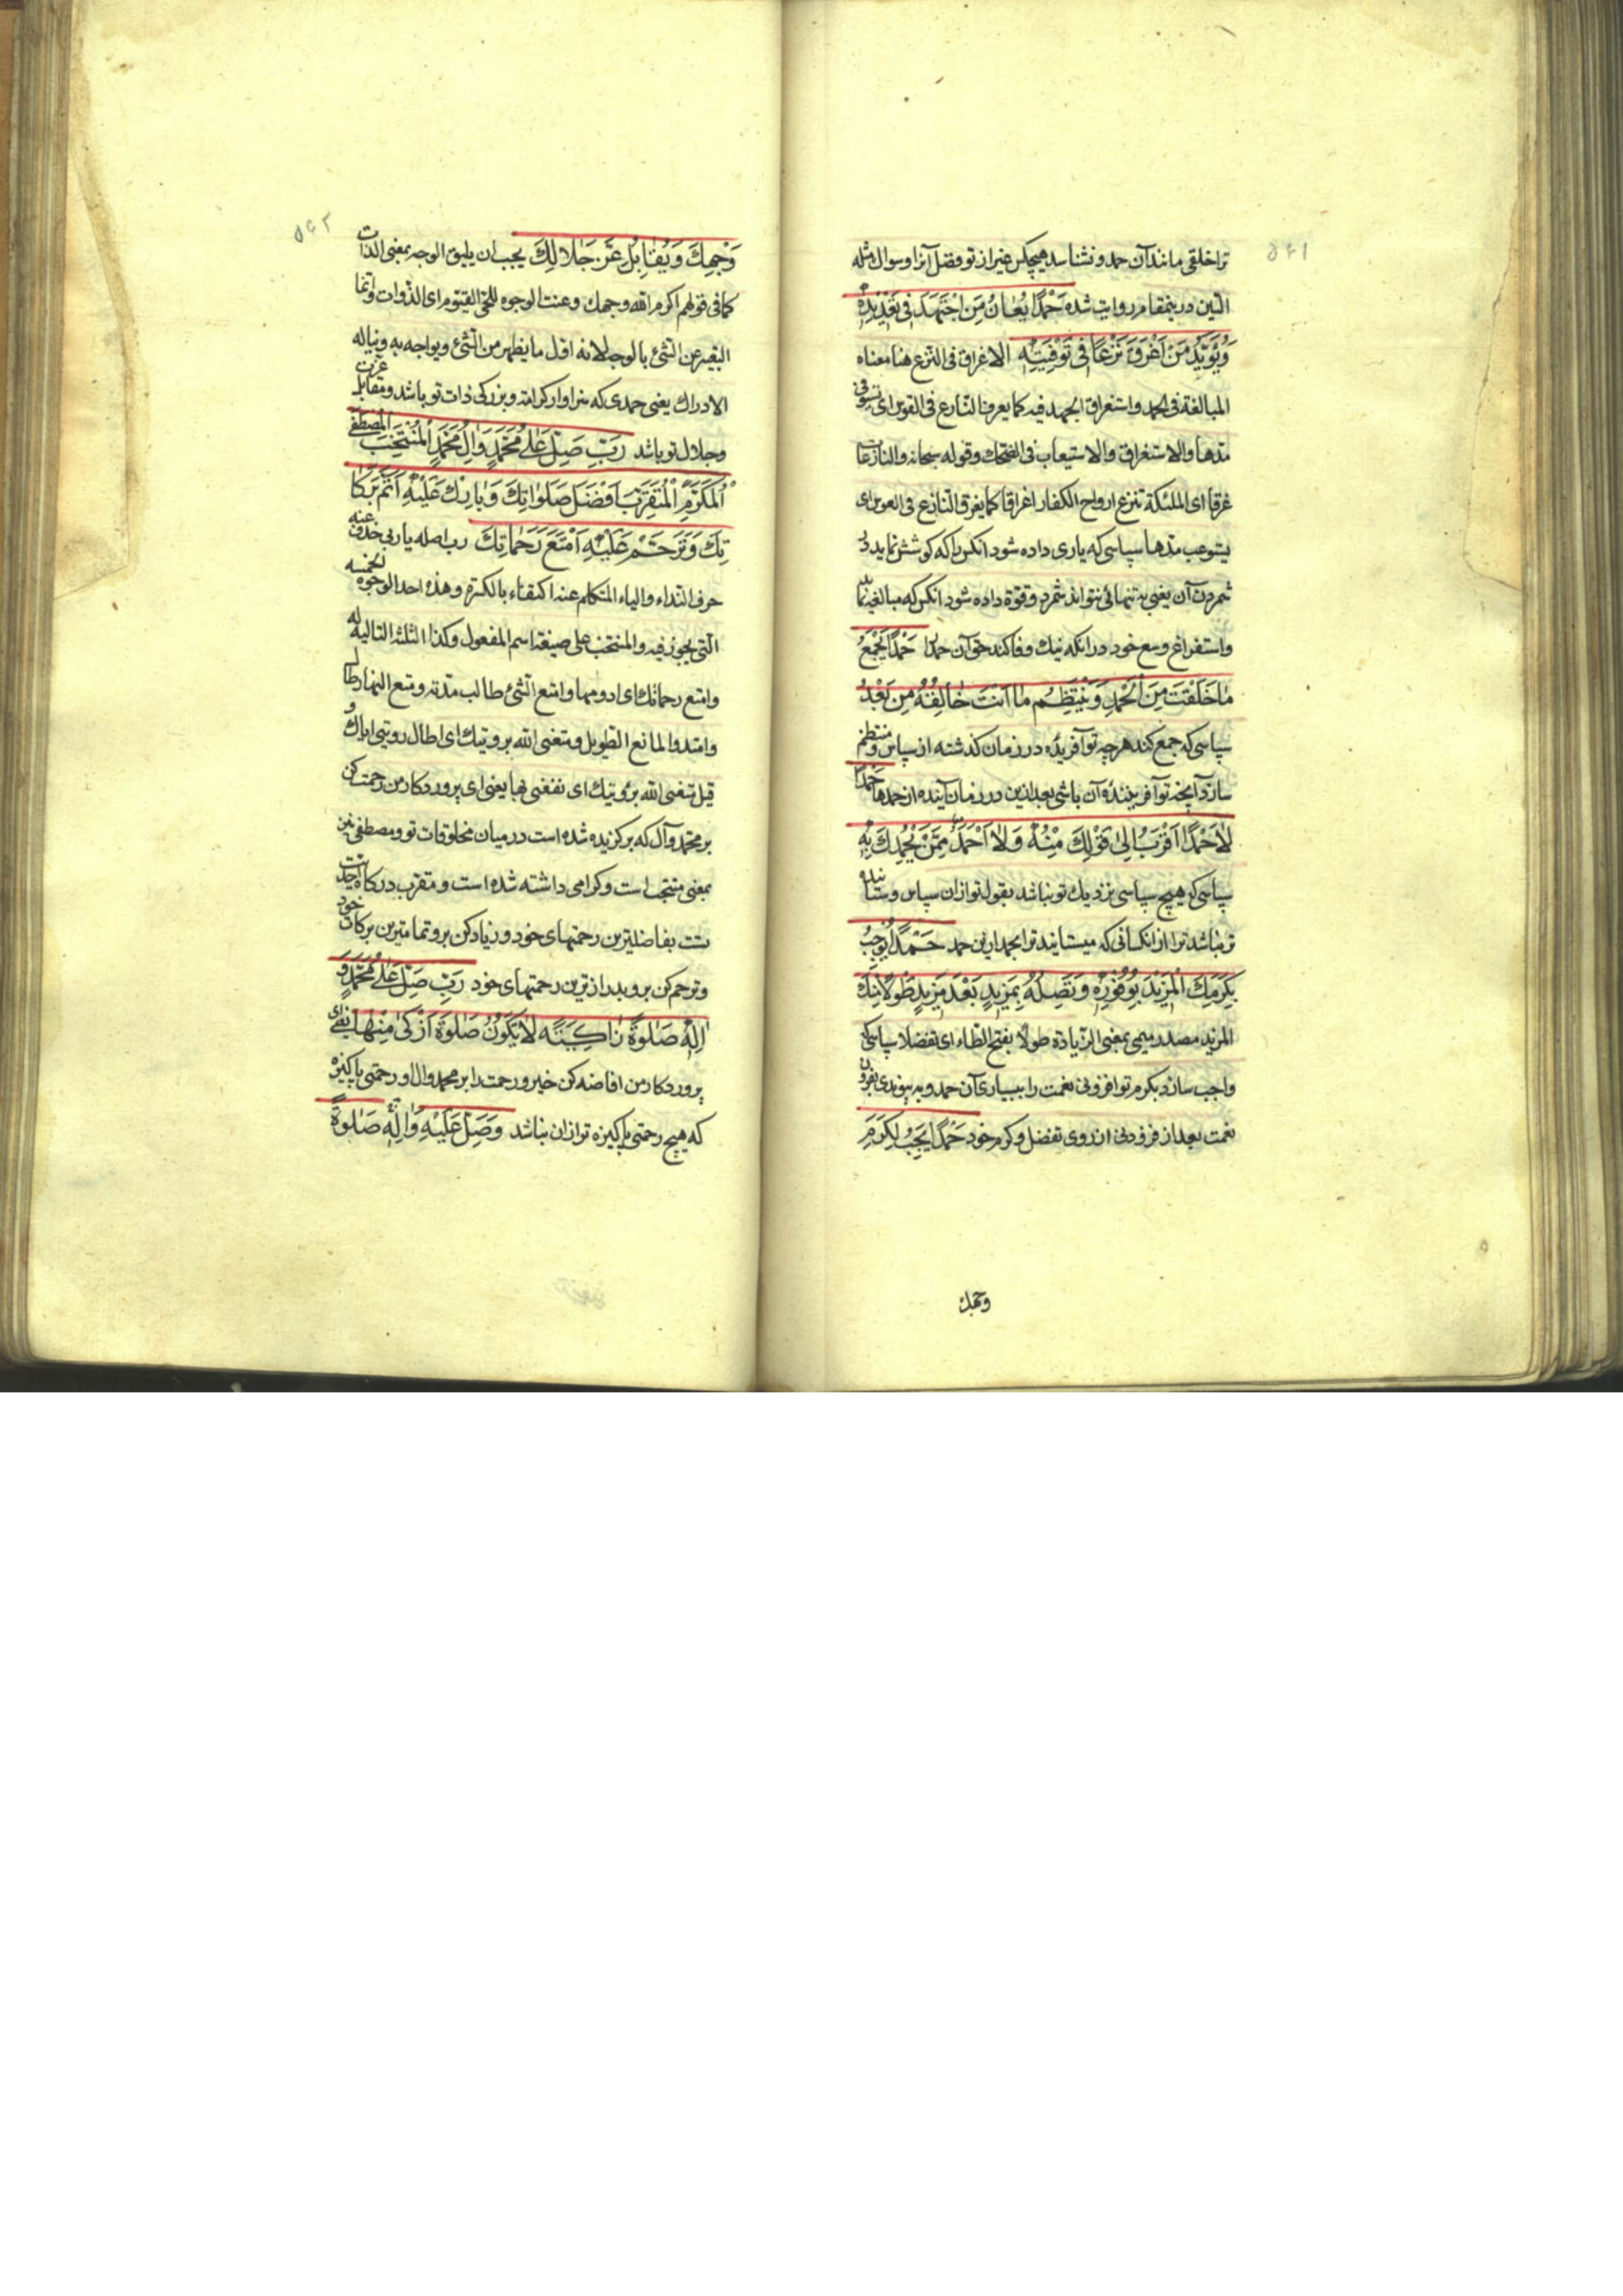 ۵۶۱
ترا خلقی مانند آن حمد و نشناسد هیچکس غیر از تو فضل آنرا وسوال مثله
الّتین درینمقام روایت شده حَمْدًا یُعٰانُ مَنِ اجْتَهَدَ فی تَعْدیدِهِ
وَیُؤَیَّدُ مَنْ اَغْرَقَ نَزْعًا فی تَوْفِیَتِهِ الاغراق فی النزع هنا معناه
المبالغة فی الحمد واستغراق الجهد فیه کما یعرف النازع فی القوس ای یستوفی
مدها والاستغراق والاستیعاب فی الضحک وقوله سبحانه والنازعات
غرقا ای الملئکة تنزع ارواح الکفار اغراقا کما یغرق النازع فی القوس ای
یستوعب مدها سپاسی که یاری داده شود انکس را که کوشش نماید در
شمردن آن یعنی به تنهائی نتواند شمرد وقوة داده شود انکس که مبالغه نماید
واستفراغ وسع خود در انکه نیک وفا کند حق آن حمد را حَمْدًا یَجْمَعُ
مٰا خَلَقْتَ مِنَ الْحَمْدِ وَیَنْتَظِمُ مٰا اَنْتَ خٰالِقُهُ مِنْ بَعْدُ
سپاسی که جمع کند هر چه تو آفریدهٔ در زمان کذشته از سپاس و منتظم
سازد آنچه تو آفرینندهٔ آن باشی بعد ازین در زمان آینده از حمدها حَمْدًا
لٰا حَمْدَ اَقْرَبُ اِلیٰ قَوْلِکَ مِنْهُ وَلٰا اَحْمَدَ مِمَّنْ یَحْمَدُکَ بِهِ
سپاسی که هیچ سپاسی نزدیک تو نباشد بقول تو ازان سپاس و ستاینده
تر نباشد ترا از انکسانی که میستایند ترا بحمد این حمد حَمْدًا یُوجِبُ
بِکَرَمِکَ الْمَزیدَ بِوُفُورِهِ وَتَصِلُهُ بِمَزیدٍ بَعْدَ مَزیدٍ طَوْلًا مِنْکَ
المزید مصدر میمی بمعنی الزیادة طولا بفتح الطاء ای تفضلا سپاسی که
واجب سازد بکرم تو افزونی نعمت را ببسیاری آن حمد و به پیوندی بفزونی
نعمت بعد از فزونی از روی تفضل وکرم خود حَمْدًا یَجِبُ لِکَرَمِ
وجهک
۵۶۲
وَجْهِکَ وَیُقٰابِلُ عِزَّ جَلٰالِکَ یجب ان یلیق الوجه بمعنی الذات
کما فی قولهم اکرم الله وجهک وعنت الوجوه للحی القیوم ای الذوات وانما
التعبیر عن الشئ بالوجه لانه اول ما یظهر من الشئ ویواجه به ویناله
الادراک یعنی حمدی که سزاوار کرامة وبزرکی ذات تو باشد و مقابل عزت
وجلال تو باشد رَبِّ صَلِّ عَلٰی مُحَمَّدٍ وَاٰلِ مُحَمَّدٍ الْمُنْتَجَبِ الْمُصْطَفیٰ
الْمُکَرَّمِ الْمُقَرَّبِ اَفْضَلَ صَلَوٰاتِکَ وَبٰارِکْ عَلَیْهِ اَتَمَّ بَرَکٰا
تِکَ وَتَرَحَّمْ عَلَیْهِ اَمْتَعَ رَحَمٰاتِکَ رب اصله یا ربی حذف عنه
حرف النداء والیاء المتکلم عنه اکتفاء بالکسرة وهذه احد الوجوه الخمسه
التی یجوز فیه والمنتخب علی صیغة اسم المفعول وکذا الثلثه التالیه له
وامتع رحماتک ای ادومها وامتع الشئ طالب مدته ومتع النهار طال
وامتد والماتع الطویل ومتعنی الله برویتک ای اطال رویتی ایاک و
قیل متعنی الله برؤیتک ای نفعنی بها یعنی ای پروردکار من رحمت کن
بر محمد وآل که برکزیده شده است در میان مخلوقات تو ومصطفی نیز
بمعنی منتجب است وکرامی داشته شده است و متقرب درکاه احدیت
تست بفاضلترین رحمتهای خود و زیاد کن برو تمامترین برکات خود
وترحم کن برو بدرازترین رحمتهای خود رَبِّ صَلِّ عَلٰی مُحَمَّدٍ وَ
اٰلِهِ صَلٰوةً زٰاکِیَةً لٰا یَکُونُ صَلٰوةٌ اَزْکیٰ مِنْهٰا یعنی ای
پروردکار من افاضه کن خیر ورحمت را بر محمد وال او رحمتی پاکیزه
که هیچ رحمتی پاکیزه تر ازان نباشد وَصَلِّ عَلَیْهِ وَاٰلِهِ صَلٰوةً